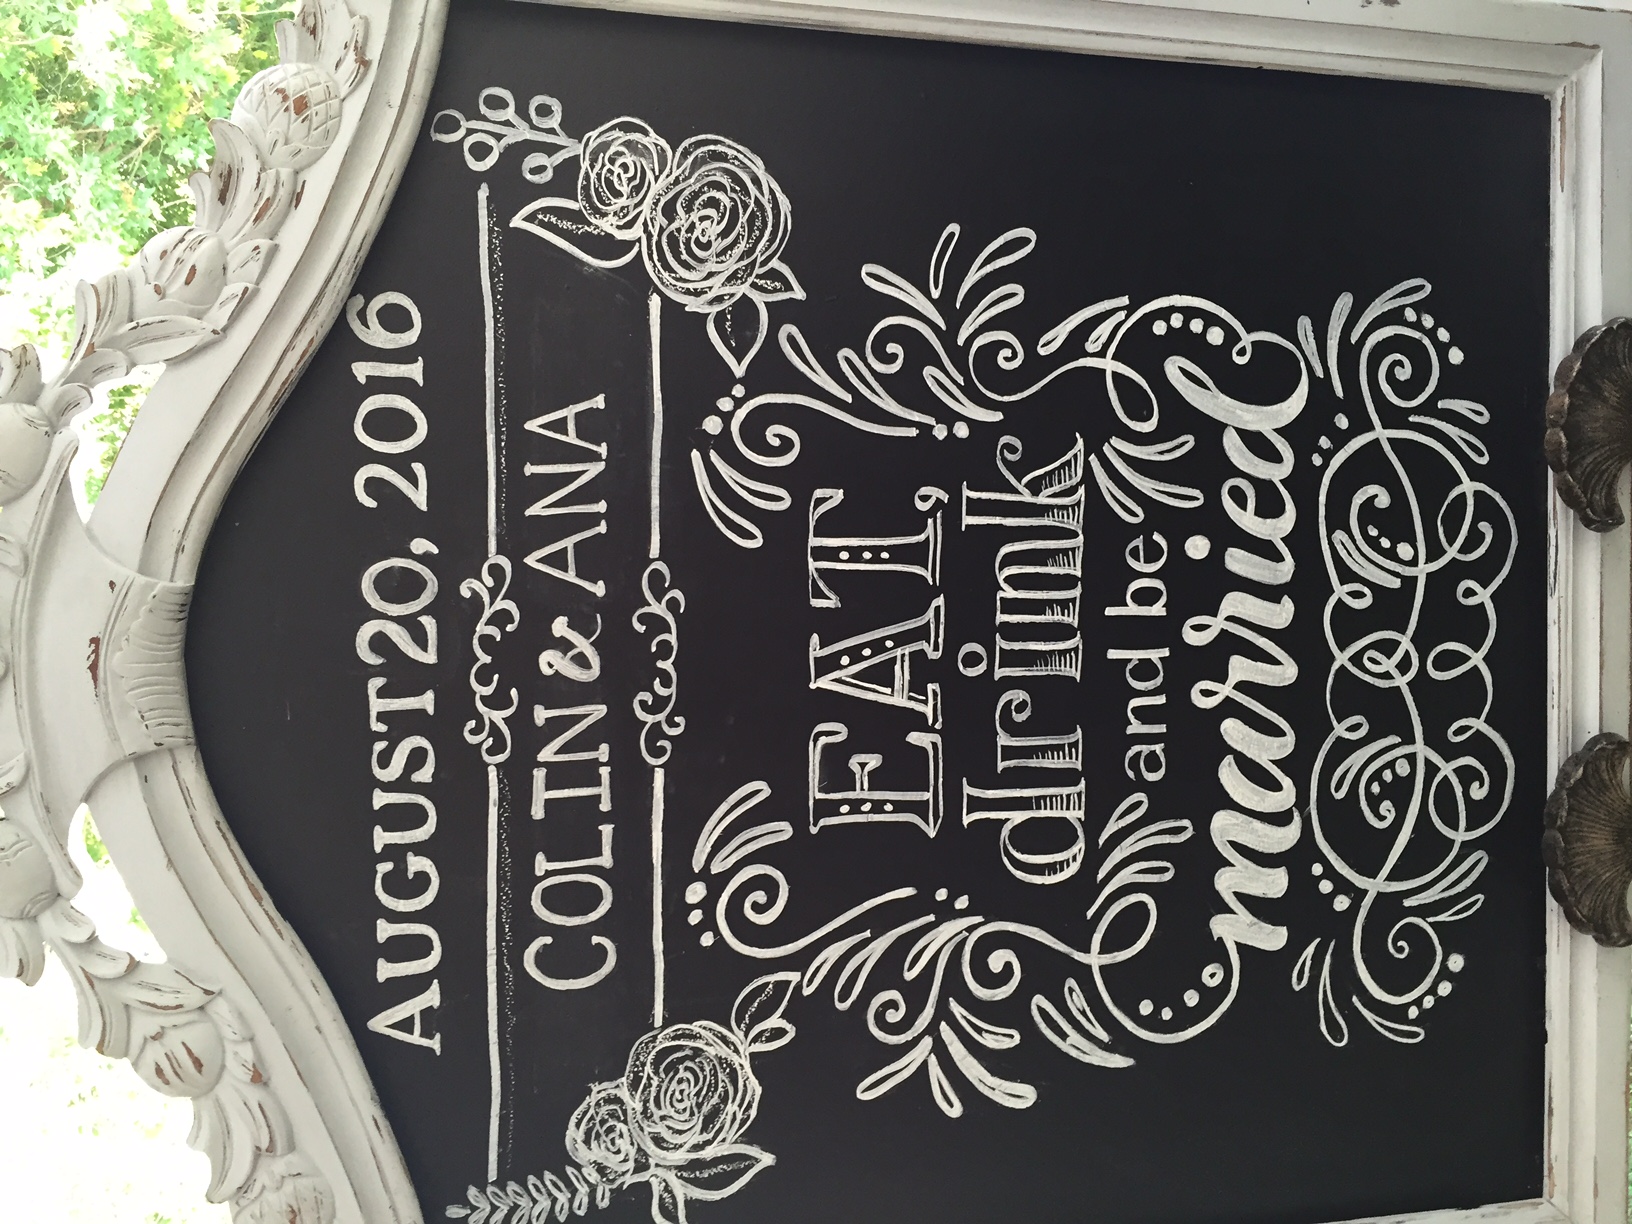 AUGUST 20, 2016
COLIN & ANA
EAT,
drink
and be
married